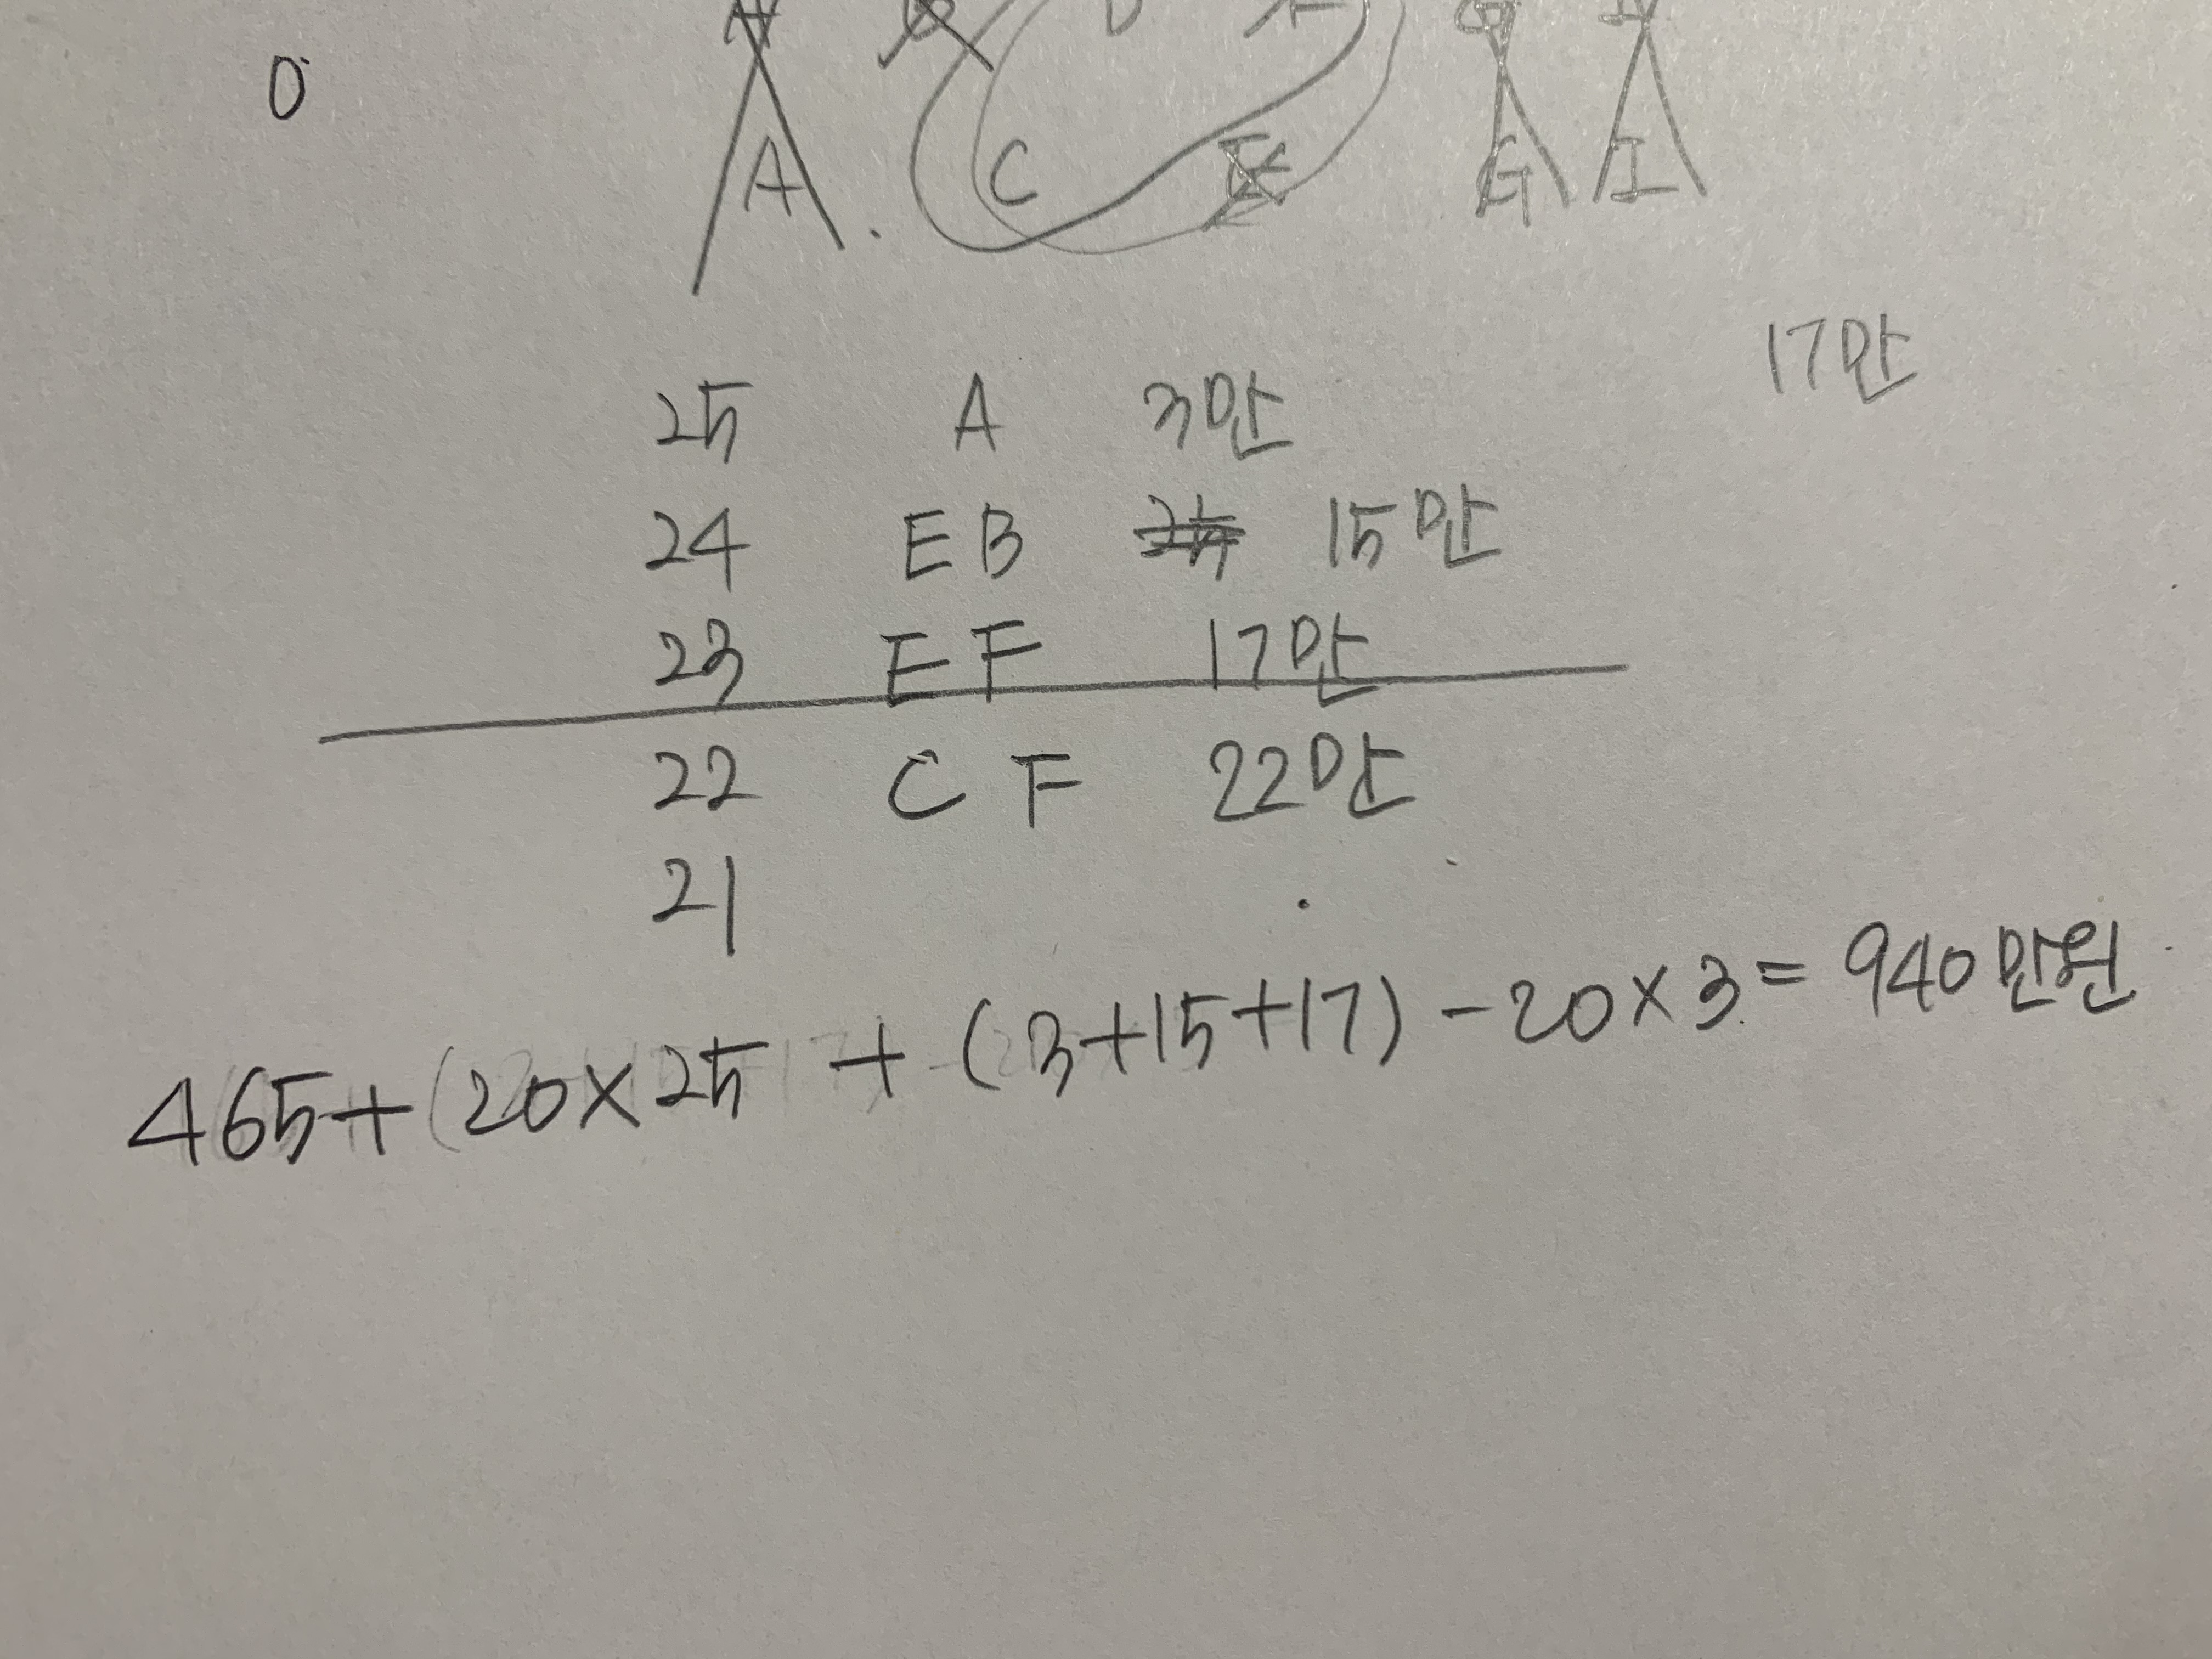 0
A C G I
17만
25 A 3만
24 E B 15만
23 E F 17만
22 C F 22만
21
465+(20×25 + (3+15+17) -20×3= 940만원